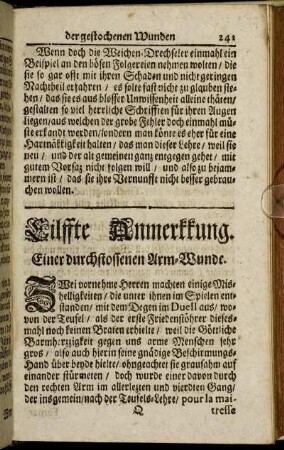 der gestochenen Wunden 241
Wenn doch die Weichen-Drechseler einmahl ein
Beispiel an den bösen Folgereien nehmen wolten / die
sie so gar offt mit ihren Schaden und nicht geringen
Nachtheil erfahren / es solte fast nicht zu glauben ste-
hen / das sie es aus blosser Unwissenheit alleine thäten /
gestalten so viel herrliche Schrifften für ihren Augen
liegen / aus welchen der grobe Fehler doch einmahl mü-
ste erkandt werden / sondern man könte es eher für eine
Hartnäkkigkeit halten / das man dieser Lehre / weil sie
neu / und der alt gemeinen ganz entgegen gehet / mit
gutem Vorsaz nicht folgen will / und also zu bejam-
mern ist / das sie ihre Vernunfft nicht besser gebrau-
chen wollen.
Eilffte Anmerkkung.
Einer durchstossenen Arm-Wunde.
ZWei vornehme Herren machten einige Mis-
helligkeiten / die unter ihnen im Spielen ent-
standen / mit dem Degen im Duell aus / wo-
von der Teufel / als der erste Friedensstöhrer dieses-
mahl noch keinen Braten erhielte / weil die Göttliche
Barmhertzigkeit gegen uns arme Menschen sehr
gros / also auch hierin seine gnädige Beschirmungs-
Hand über beyde hielte / ohngeachtet sie grausahm auf
einander stürmeten / doch wurde einer davon durch
den rechten Arm im allerlezten und vierdten Gang /
der insgemein / nach der Teufels-Lehre / pour la mai-
Q tresse